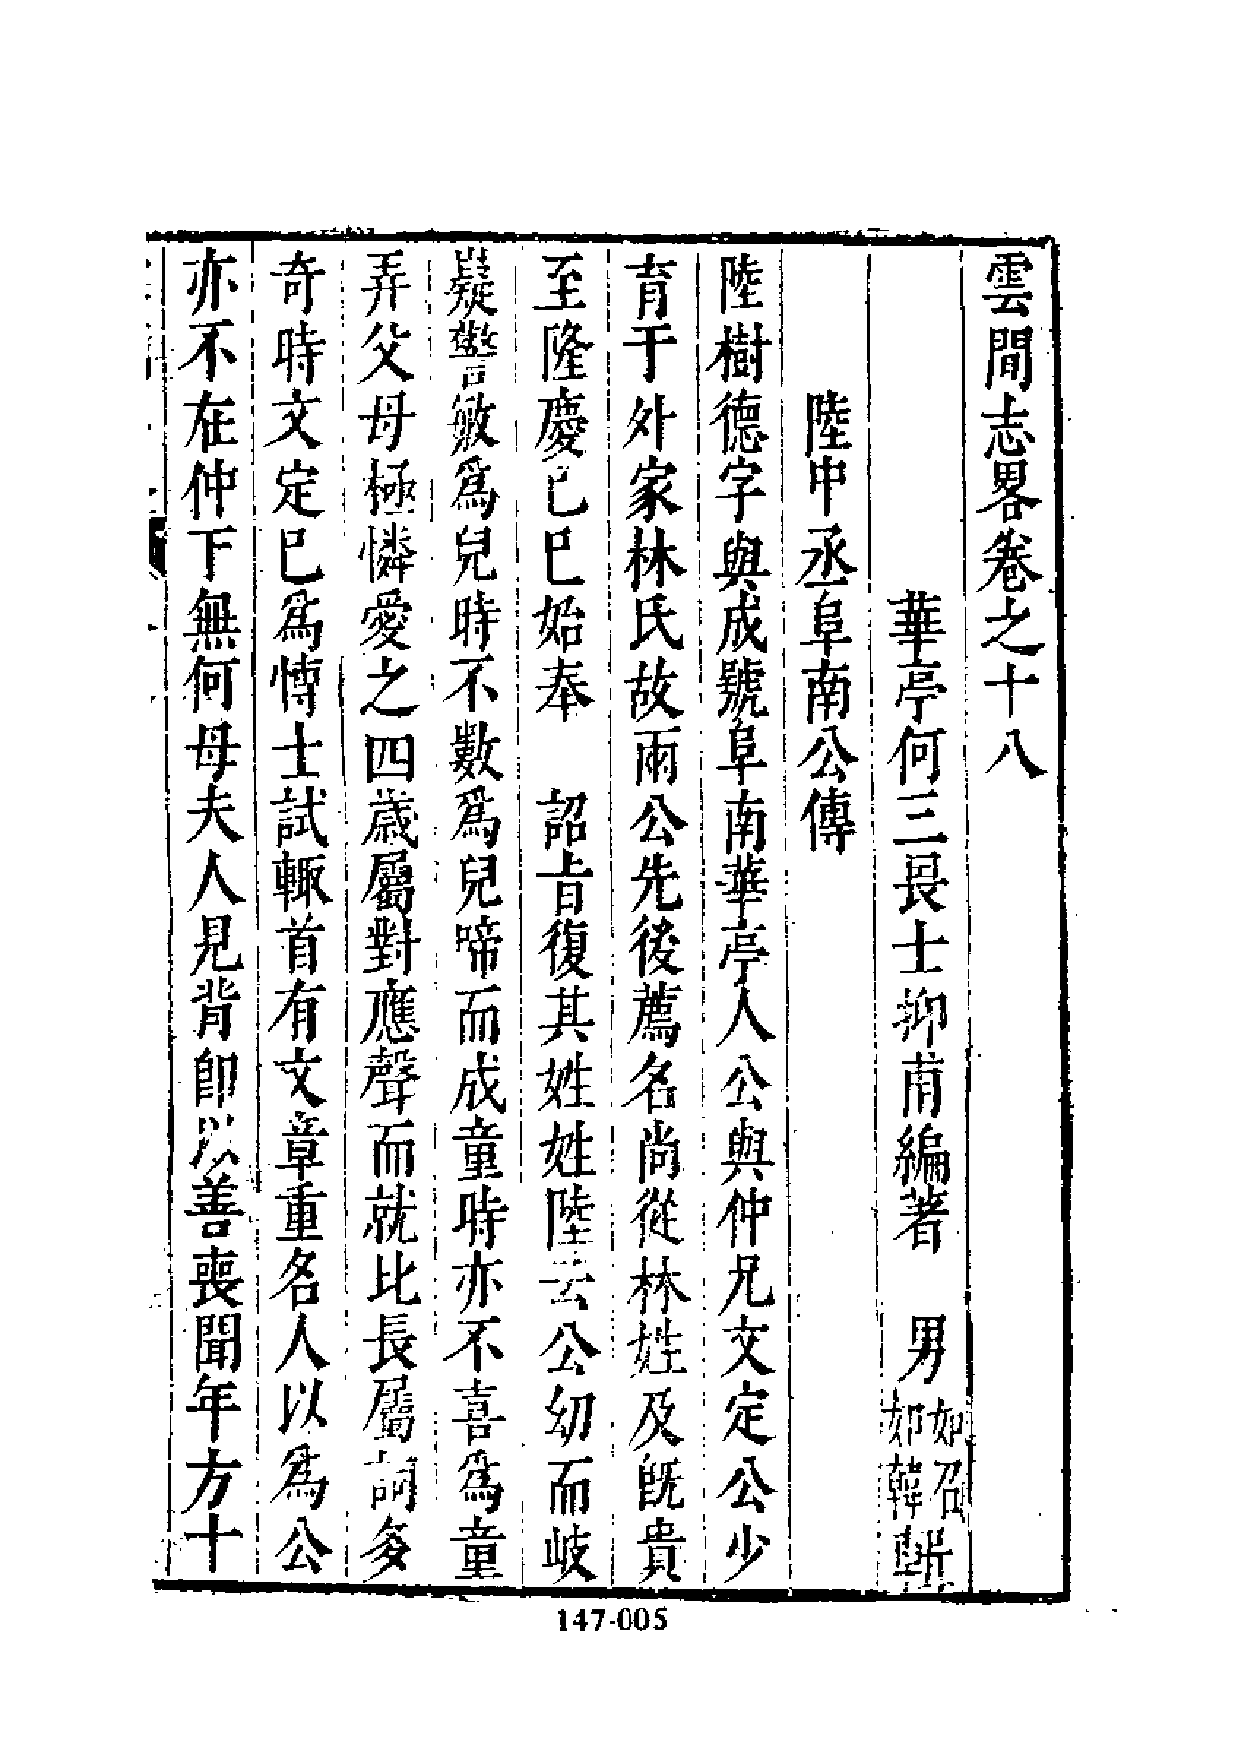 雲間志畧卷之十八
華亭何三畏士抑甫編著 男 如召 如韓
陸中丞阜南公傳
陸樹德字與成號阜南華亭人公與仲兄文定公少
育于外家林氏故兩公先後薦名尚從林姓及旣貴
至隆慶己巳始奉 詔旨復其姓姓陸云公幼而岐
嶷警敏爲兒時不數爲兒啼而成童時亦不喜爲童
弄父母極憐愛之四歲屬對應聲而就比長屬詞多
奇時文定已爲博士試輙首有文章重名人以爲公
亦不在仲下無何母夫人見背卽以善喪聞年方十
147-005